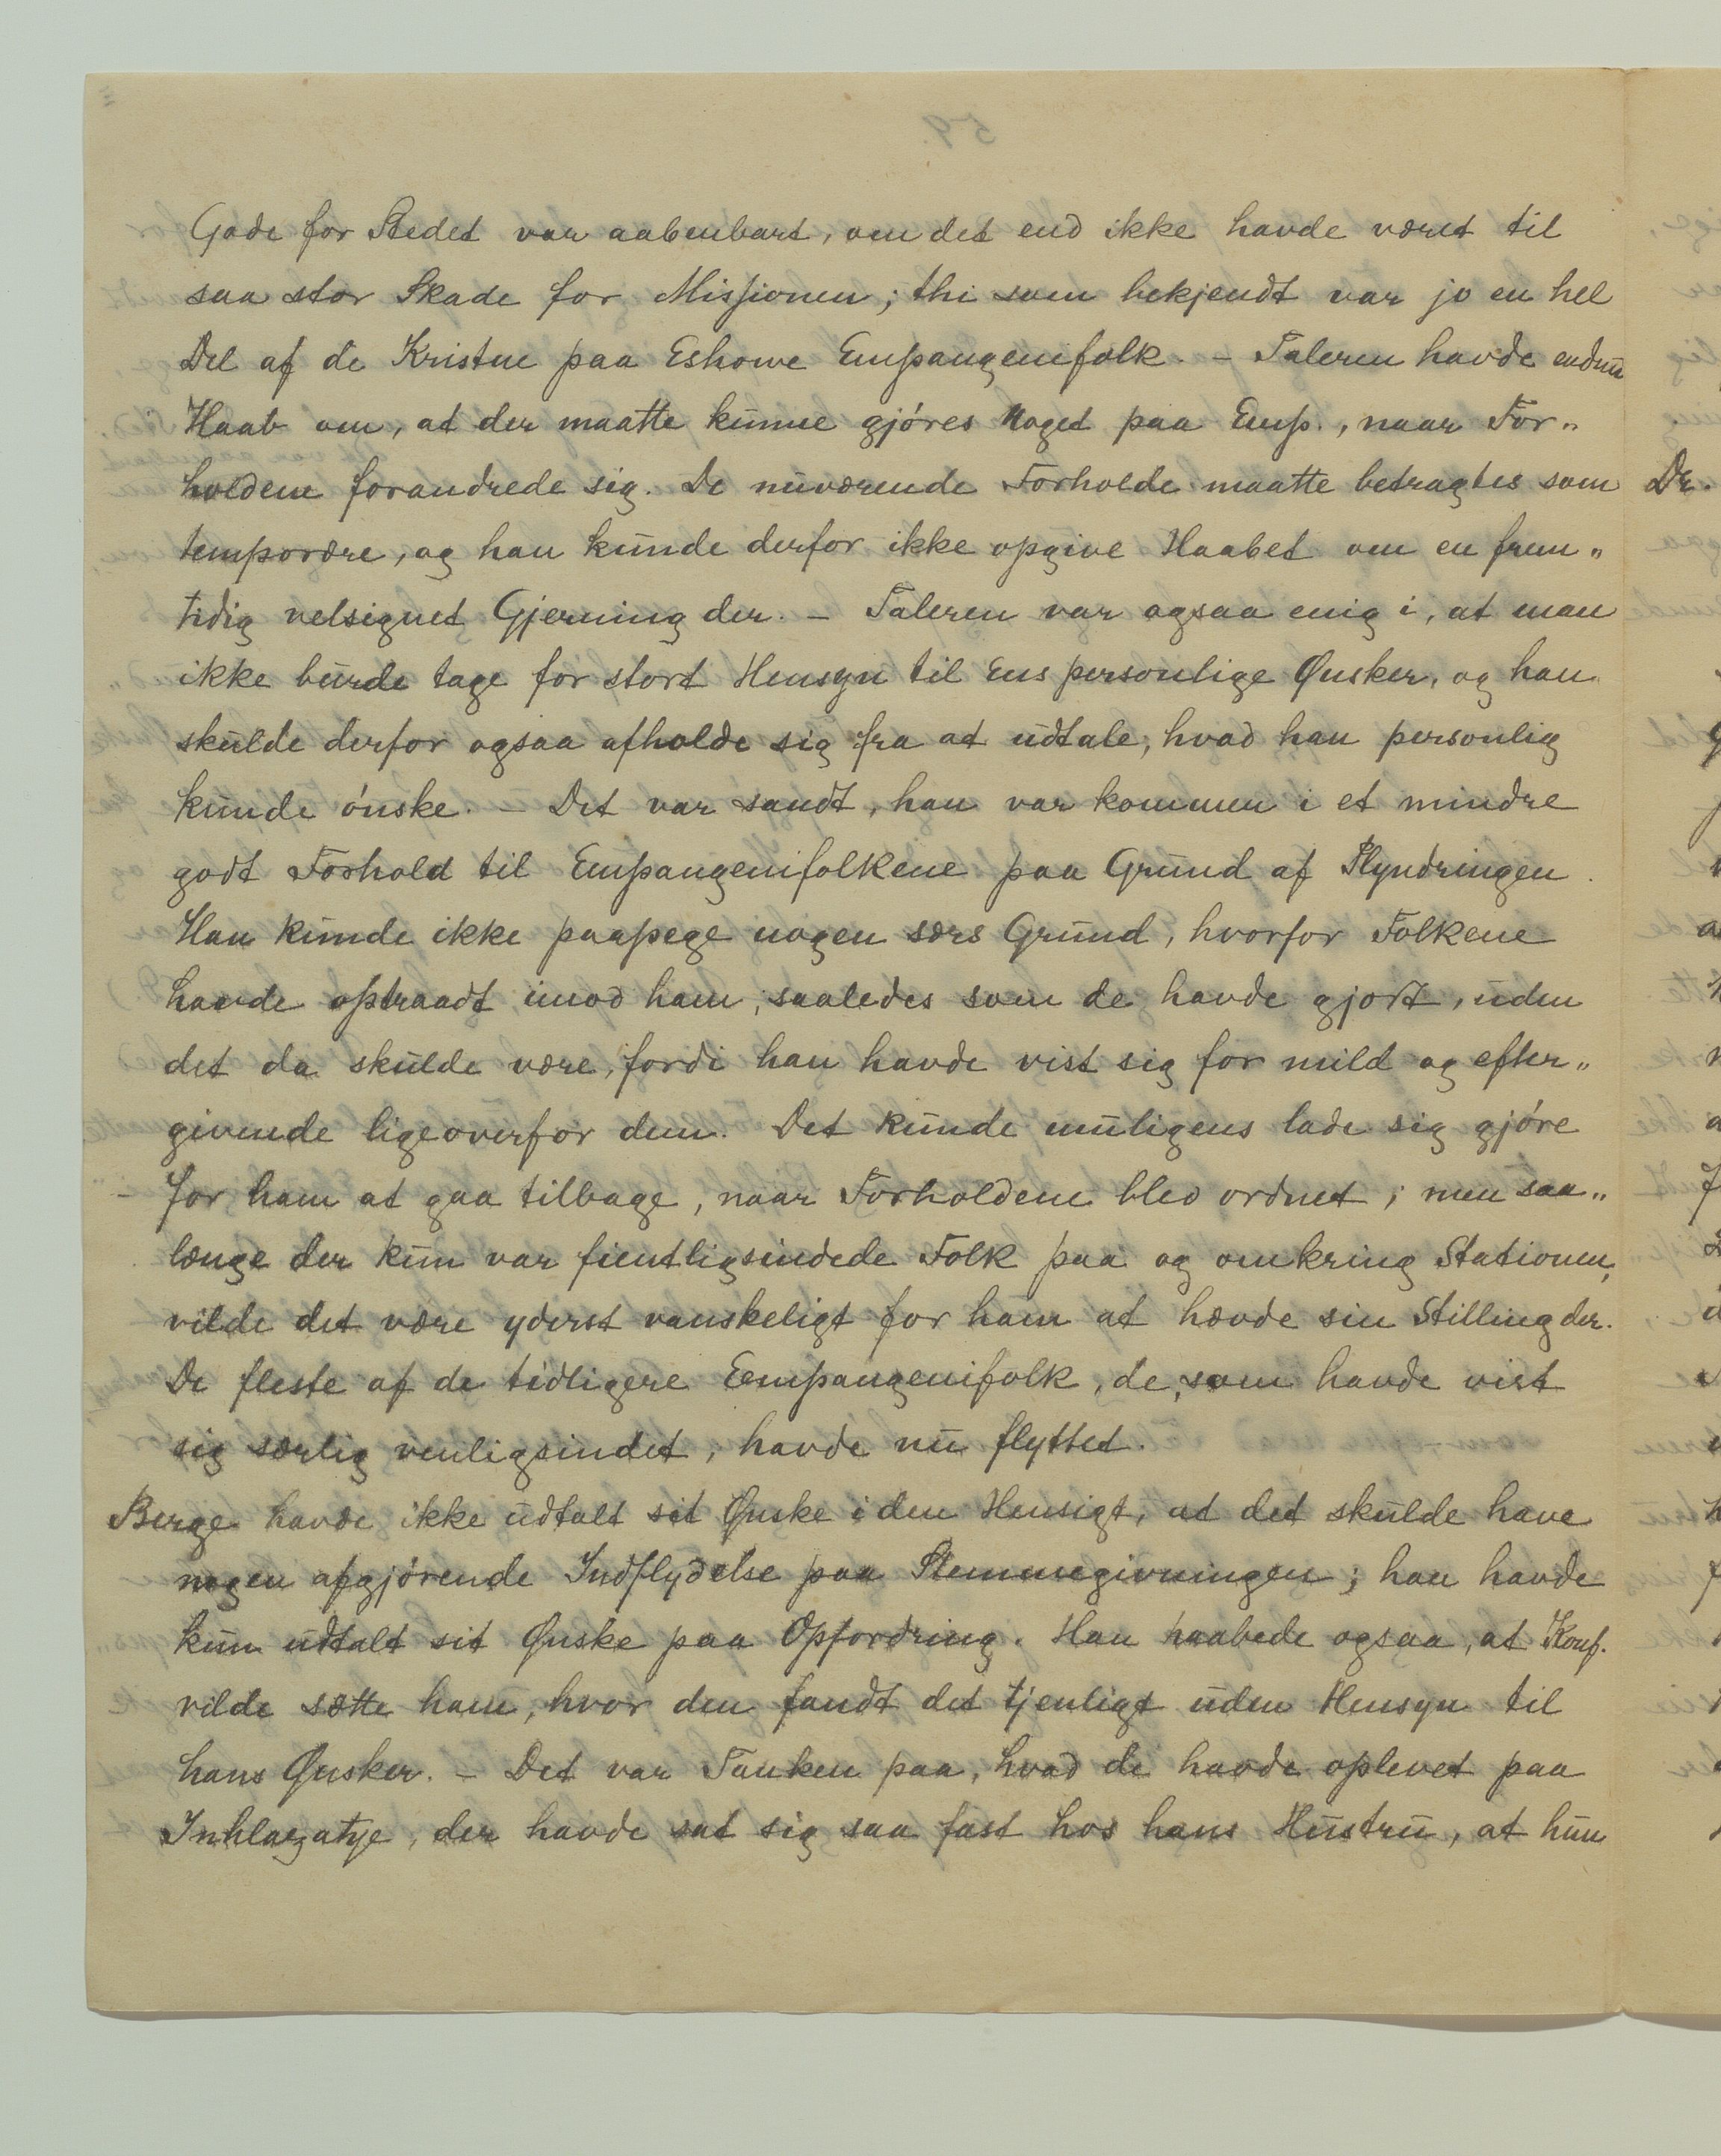 Gode for Stedet var aabenbart, om det end ikke havde været til
saa stor Skade for Missionen; thi som bekjendt var jo en hel
Del af de Kristne paa Eshowe Empangenifolk. – Taleren havde endnu
Haab om, at der maatte kunne gjöres Noget paa Emp., naar For„
holdene forandrede sig. De nuværende Forholde maatte betragtes som
temporære, og han kunde derfor ikke opgive Haabet om en frem„
tidig velsignet Gjerning der. – Taleren var ogsaa enig i, at man
ikke burde tage for stort Hensyn til Ens personlige Ønsker, og han
skulde derfor ogsaa afholde sig fra at udtale, hvad han personlig
kunde önske. – Det var sandt, han var kommen i et mindre
godt Forhold til Empangenifolkene paa Grund af Plyndringen.
Han kunde ikke paapege nogen særs Grund, hvorfor Folkene
havde optraadt imod ham, saaledes som de havde gjort, uden
det da skulde være, fordi han havde vist sig for mild og efter„
givende ligeoverfor dem. Det kunde muligens lade sig gjöre
for ham at gaa tilbage, naar Forholdene blev ordnet; men saa„
længe der kun var fientligsindede Folk paa og omkring Stationen,
vilde det være yderst vanskeligt for ham at hævde sin Stilling der.
De fleste af de tidligere Eempangenifolk, de, som havde vist
sig særlig venligsindet, havde nu flyttet.
Berge havde ikke udtalt sit Ønske i den Hensigt, at det skulde have
nogen afgjörende Indflydelse paa Stemmegivningen; han havde
kun udtalt sit Ønske paa Opfordring. Han haabede ogsaa, at Konf.
vilde sætte ham, hvor den fandt det tjenligt uden Hensyn til
hans Ønsker. – Det var Tanken paa, hvad de havde oplevet paa
Inhlazatye, der havde sat sig saa fast hos hans Hustru, at hun
Dr.